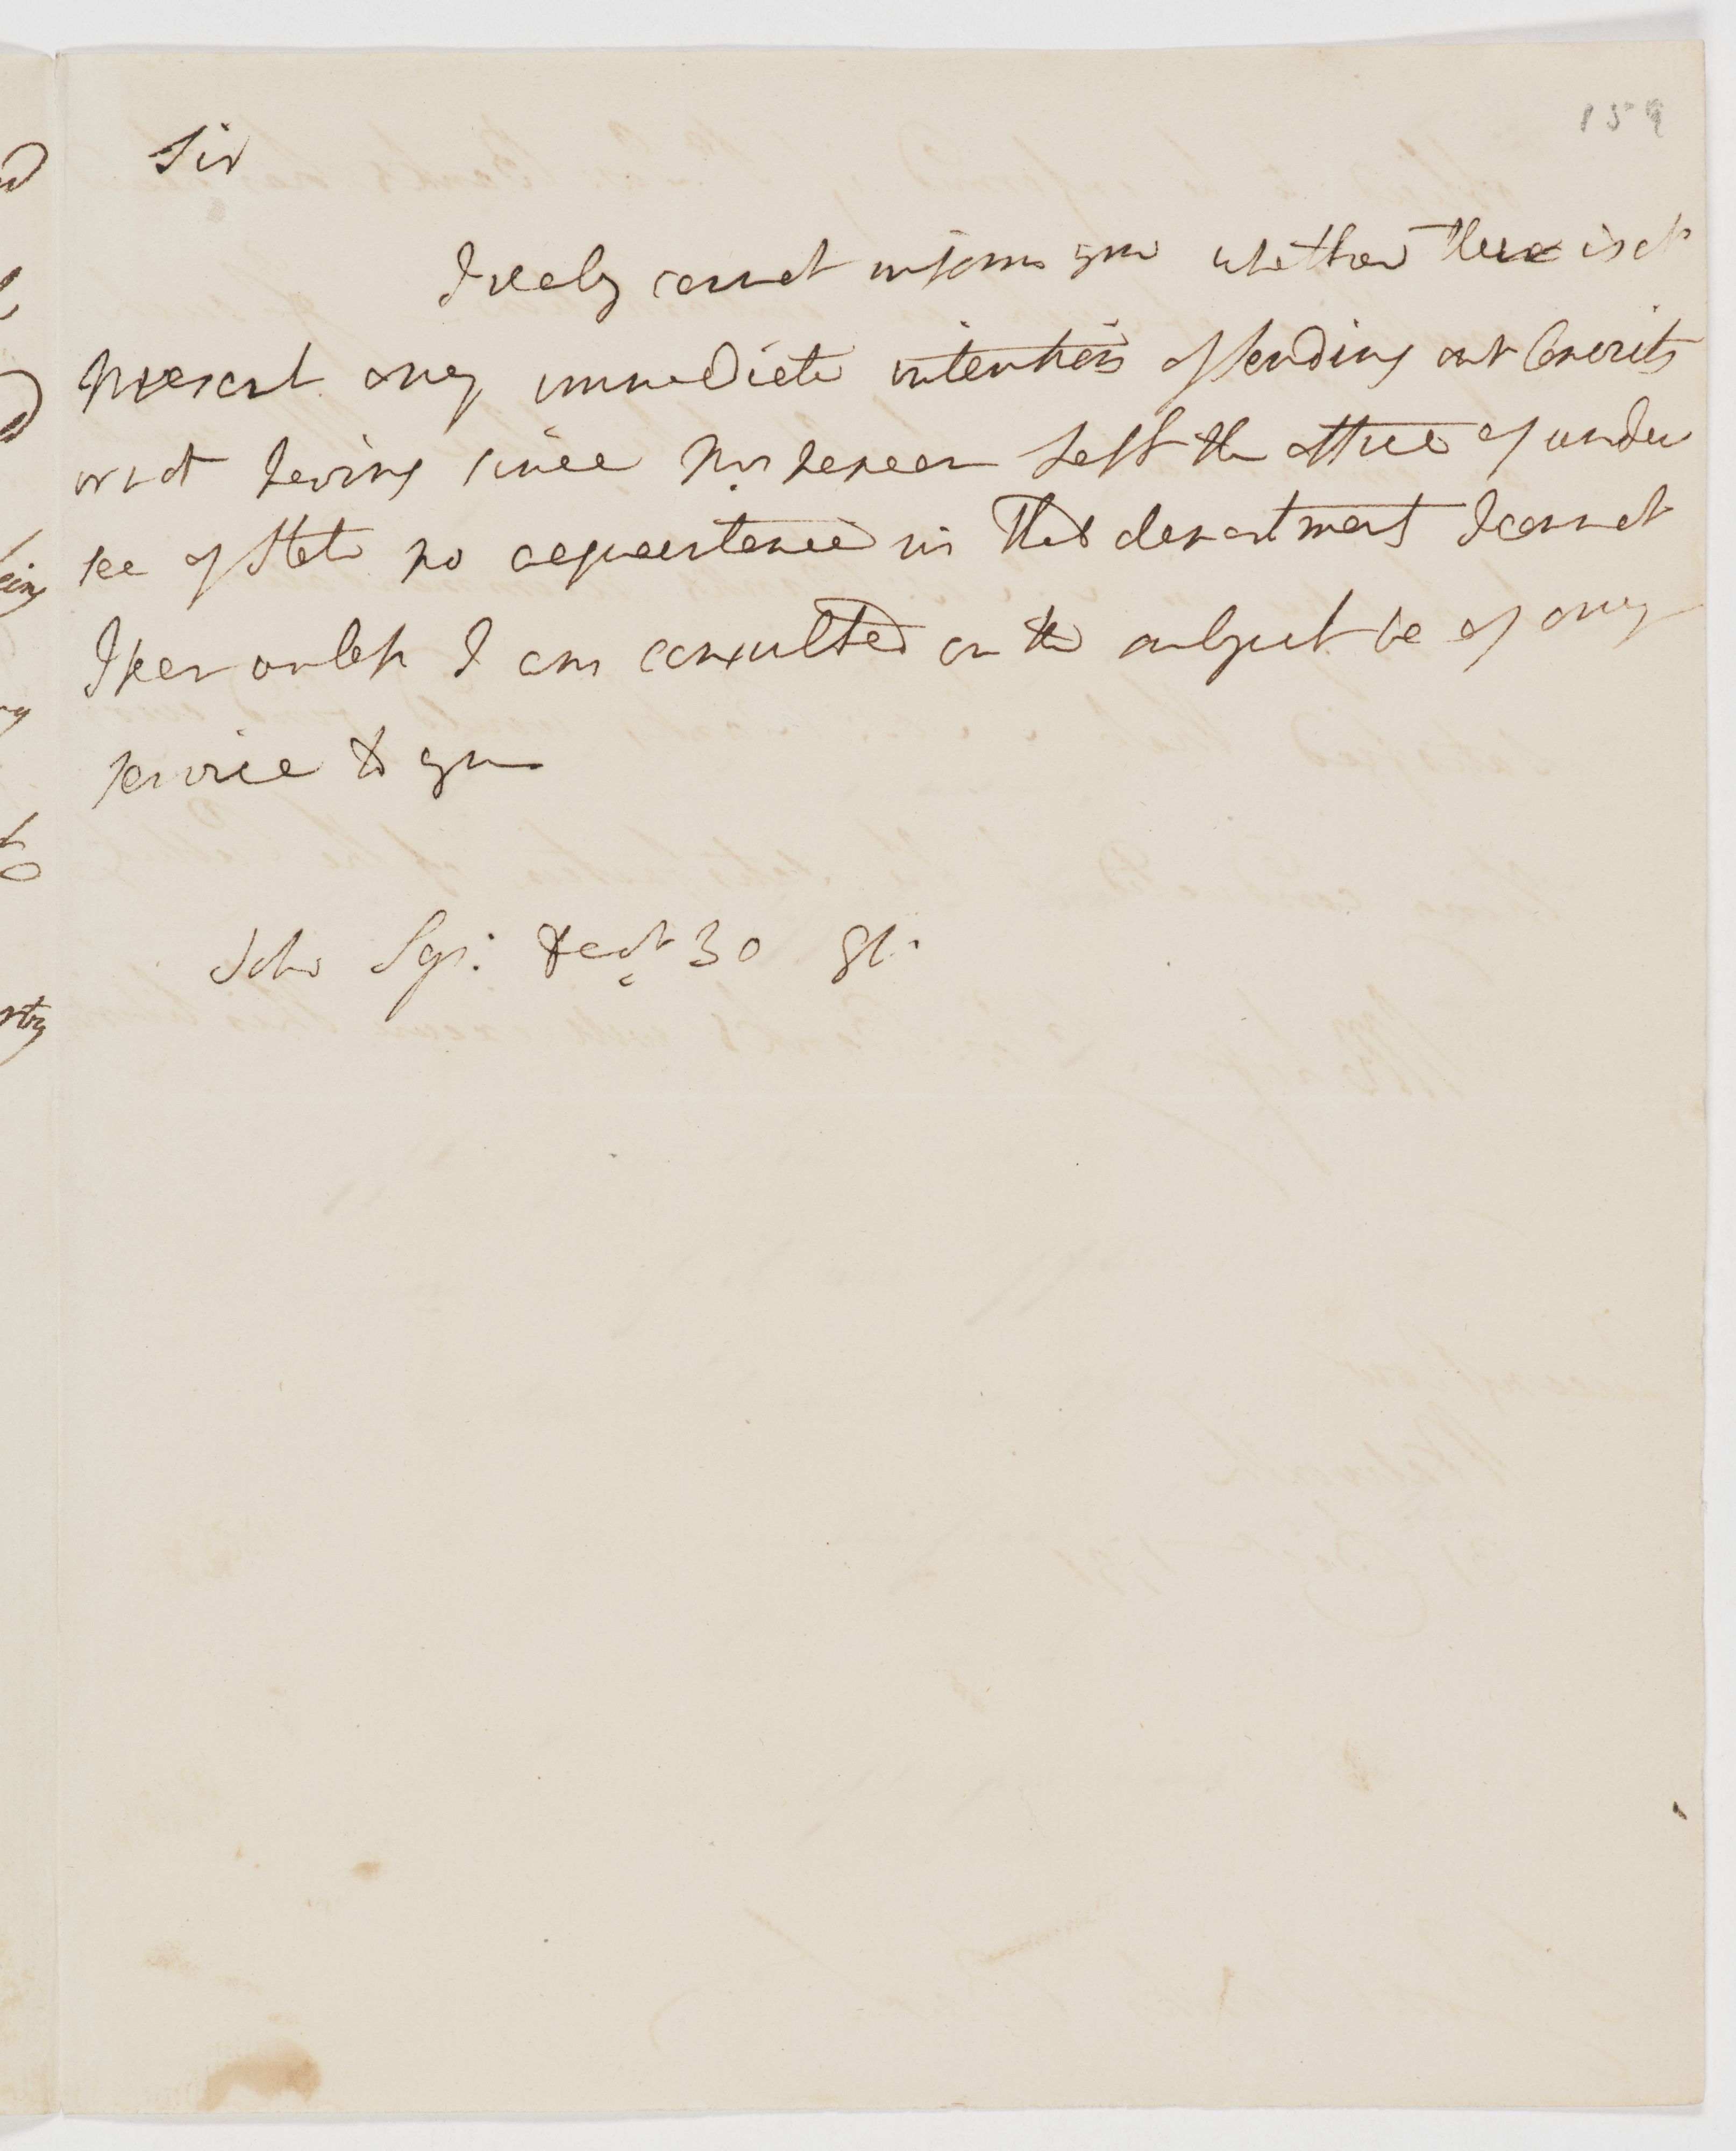 159
Sir
I realy cannot inform you whether there is at
present any immediate intention of sending out Convicts
or not having since Mr Nepean Left the office of under
sec of State no acquaintance in that department I cannot
I fear unless I am consulted on the subject be of any
service to you
Soho Sqr: 30 91